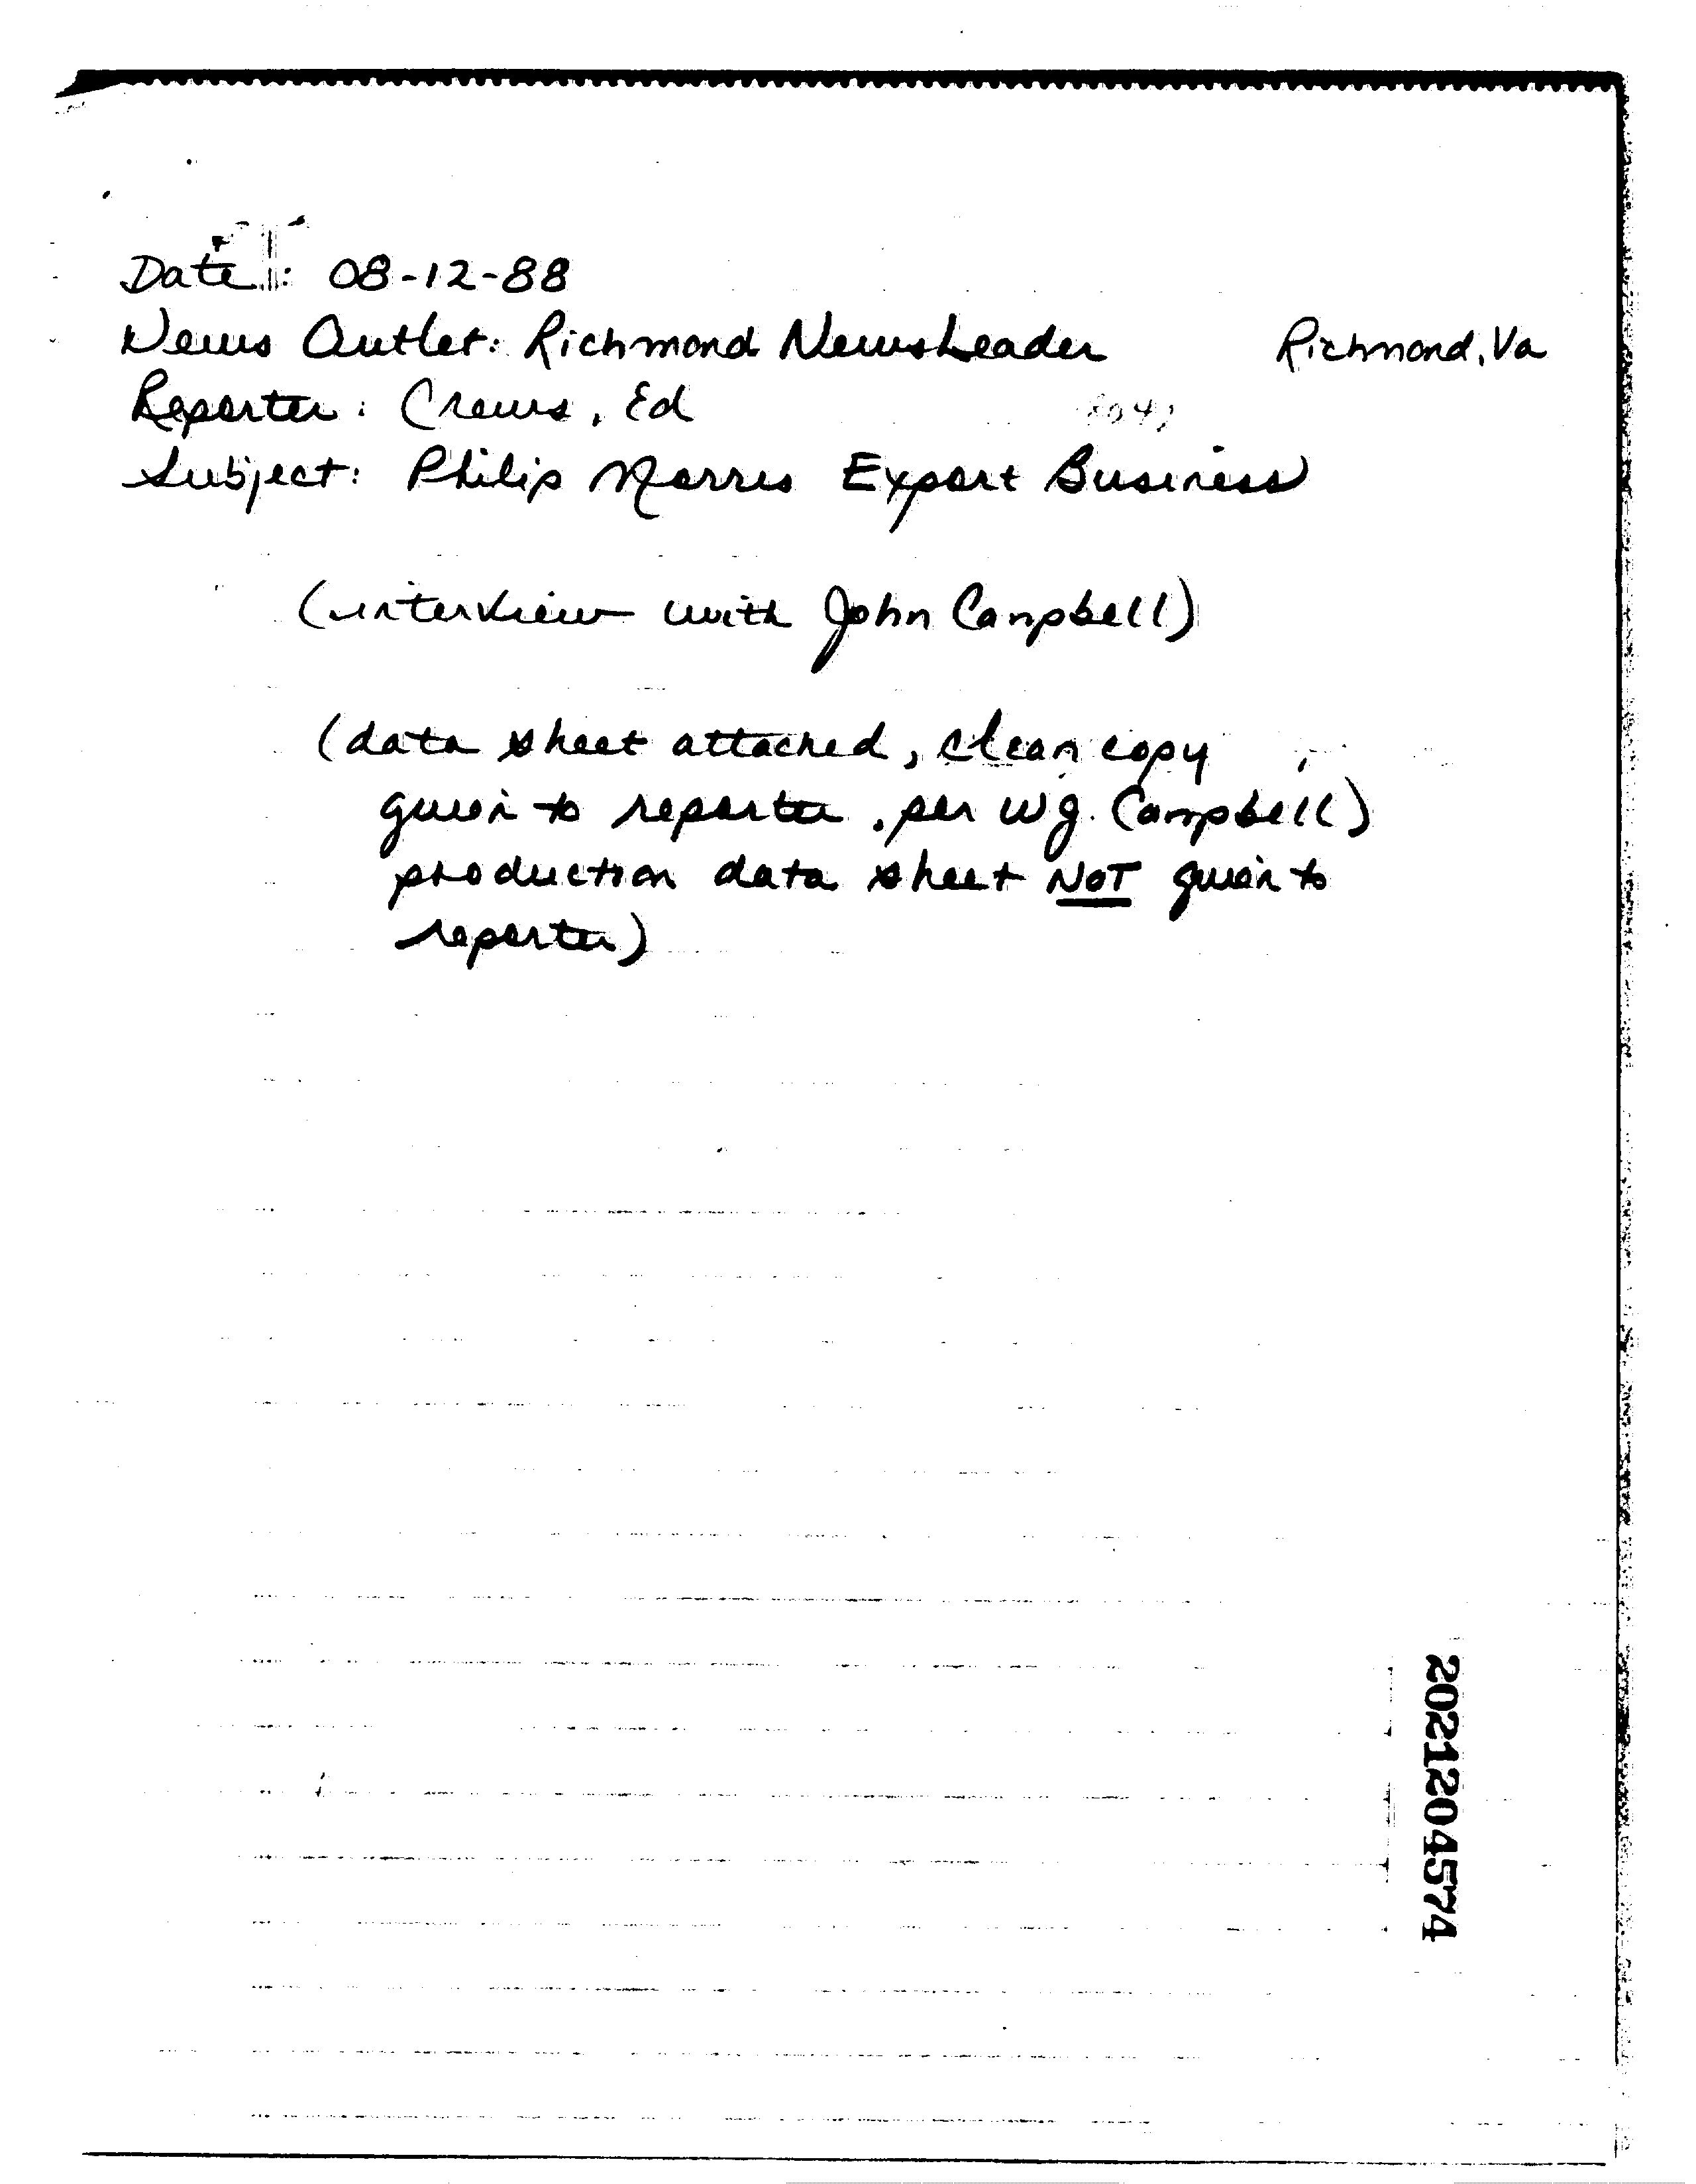 Date: 08-12-88
News Outlet: Richmond NewsLeader Richmond, Va
Reporter: Crews, Ed
Subject: Philip Morris Export Business
(interview with John Campbell)
(data sheet attached, clean copy
given to reporter, per WJ. Campbell)
production data sheet NOT given to
reporter)
2021204574